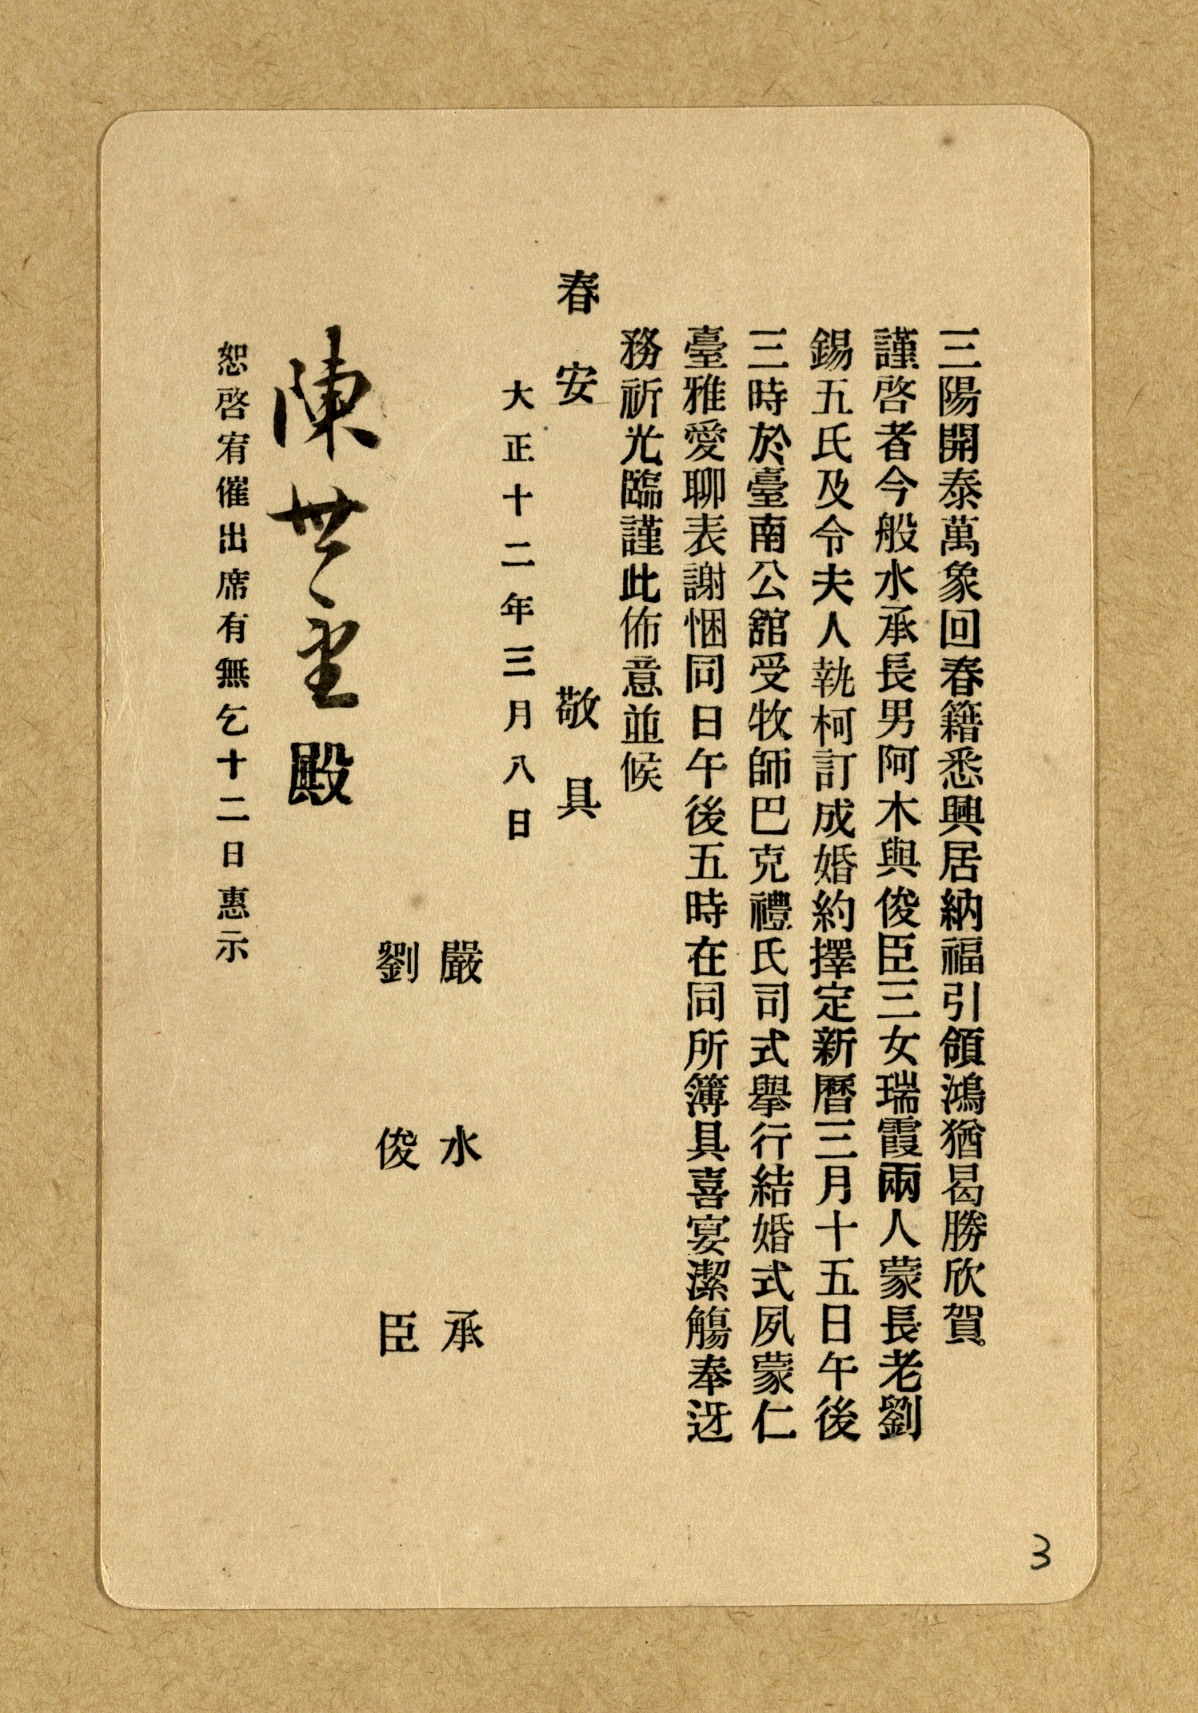 三陽開泰萬象回春籍悉興居納福引領鴻猶曷勝欣賀。
謹啓者今般水承長男阿木與俊臣三女瑞霞兩人蒙長老劉
錫五氏及令夫人執柯訂成婚約擇定新曆三月十五日午後
三時於臺南公舘受牧師巴克禮氏司式舉行結婚式夙蒙仁
臺雅愛聊表謝悃同日午後五時在同所簿具喜宴潔觴奉迓
務祈光臨謹此佈意並候
春安 敬具
大正十二年三月八日
嚴水承
劉俊臣
陳 殿
恕啓宥催出席有無乞十二日惠示
3